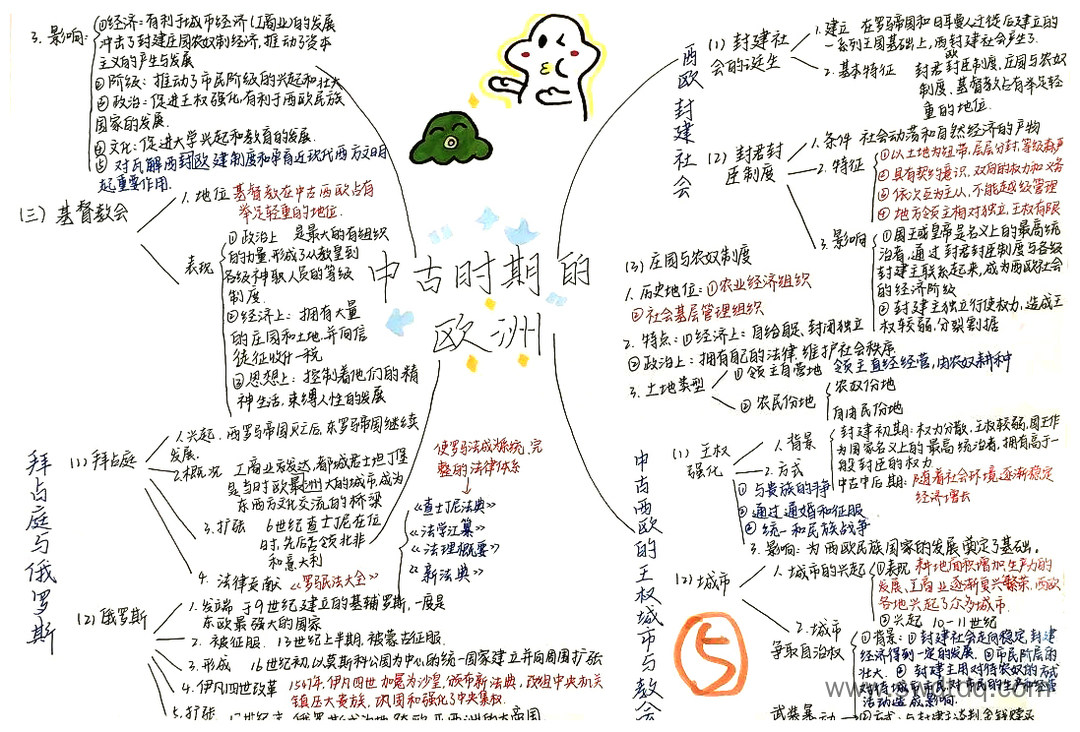 中古时期的
欧洲
西欧封建社会
(1) 封建社
会的诞生
1. 建立 在罗马帝国和日耳曼人迁徙后建立的
一系列王国基础上，西欧封建社会产生了.
2. 基本特征 封君封臣制度、庄园与农奴
制度、基督教占有举足轻
重的地位.
(2) 封君封
臣制度
1. 条件 社会动荡和自然经济的产物
2. 特征
①以土地为纽带,层层分封,等级森严
②具有契约意识,双向的权力和义务
③依次互为主从,不能越级管理
④地方领主相对独立,王权有限
3. 影响
①国王或皇帝是名义上的最高统
治者,通过封君封臣制度与各级
封建主联系起来,成为西欧社会
的经济阶级
②封建主独立行使权力,造成王
权较弱,分裂割据
(3) 庄园与农奴制度
1. 历史地位:①农业经济组织
②社会基层管理组织
2. 特点:①经济上:自给自足、封闭独立
②政治上:拥有自己的法律,维护社会秩序
3. 土地类型
①领主自营地 领主直经经营,由农奴耕种
②农民份地
农奴份地
自由民份地
中古西欧的王权城市与教会
(1) 王权
强化
1. 背景
封建初期:权力分散,王权较弱,国王作
为国家名义上的最高统治者,拥有高于一
般封臣的权力
中古中后期:随着社会环境逐渐稳定
经济增长
2. 方式
①与贵族的斗争
②通过通婚和征服
③统一和民族战争
3. 影响:为西欧民族国家的发展奠定了基础。
(2) 城市
1. 城市的兴起
①表现 耕地面积增加,生产力的
发展,工商业逐渐复兴繁荣,西欧
各地兴起了众多城市.
②兴起 10-11世纪
2. 城市
争取自治权
①背景:①封建社会走向稳定,封建
经济得到一定的发展 ②市民阶层的
壮大. ③封建主用对待农奴的方式
对待城市市民,对市民的生产和经营
活动造成影响.
武装暴动
②方式:与封建主谈判,金钱赎买
3. 影响:
①经济:有利于城市经济(工商业)的发展
冲击了封建庄园农奴制经济,推动了资本
主义的产生与发展
②阶级:推动了市民阶级的兴起和壮大
③政治:促进王权强化,有利于西欧民族
国家的发展.
④文化:促进大学兴起和教育的发展.
⑤对瓦解西欧封建制度和孕育近现代西方文明
起重要作用.
(三) 基督教会
1. 地位 基督教在中古西欧占有
举足轻重的地位.
表现
①政治上 是最大的有组织
的力量,形成了从教皇到
各级神职人员的等级
制度.
②经济上:拥有大量
的庄园和土地,并向信
徒征收什一税
③思想上:控制着他们的精
神生活,束缚人性的发展
拜占庭与俄罗斯
(1) 拜占庭
1. 兴起. 西罗马帝国灭亡后,东罗马帝国继续
发展.
2. 概况 工商业发达,都城君士坦丁堡
是当时欧洲最大的城市,成为
东西方文化交流的桥梁
3. 扩张 6世纪查士丁尼在位
时,先后占领北非
和意大利
4. 法律贡献 《罗马民法大全》
使罗马法成为系统、完
整的法律体系
《查士丁尼法典》
《法学汇纂》
《法理概要》
《新法典》
(2) 俄罗斯
1. 发端 于9世纪建立的基辅罗斯,一度是
东欧最强大的国家
2. 被征服. 13世纪上半期,被蒙古征服.
3. 形成 16世纪初,以莫斯科公国为中心的统一国家建立并向周围扩张
4. 伊凡四世改革 1547年,伊凡四世加冕为沙皇,颁布新法典,改组中央机关
镇压大贵族,巩固和强化了中央集权.
5. 扩张 17世纪末,俄罗斯成为地跨欧亚两洲的大帝国
⑤